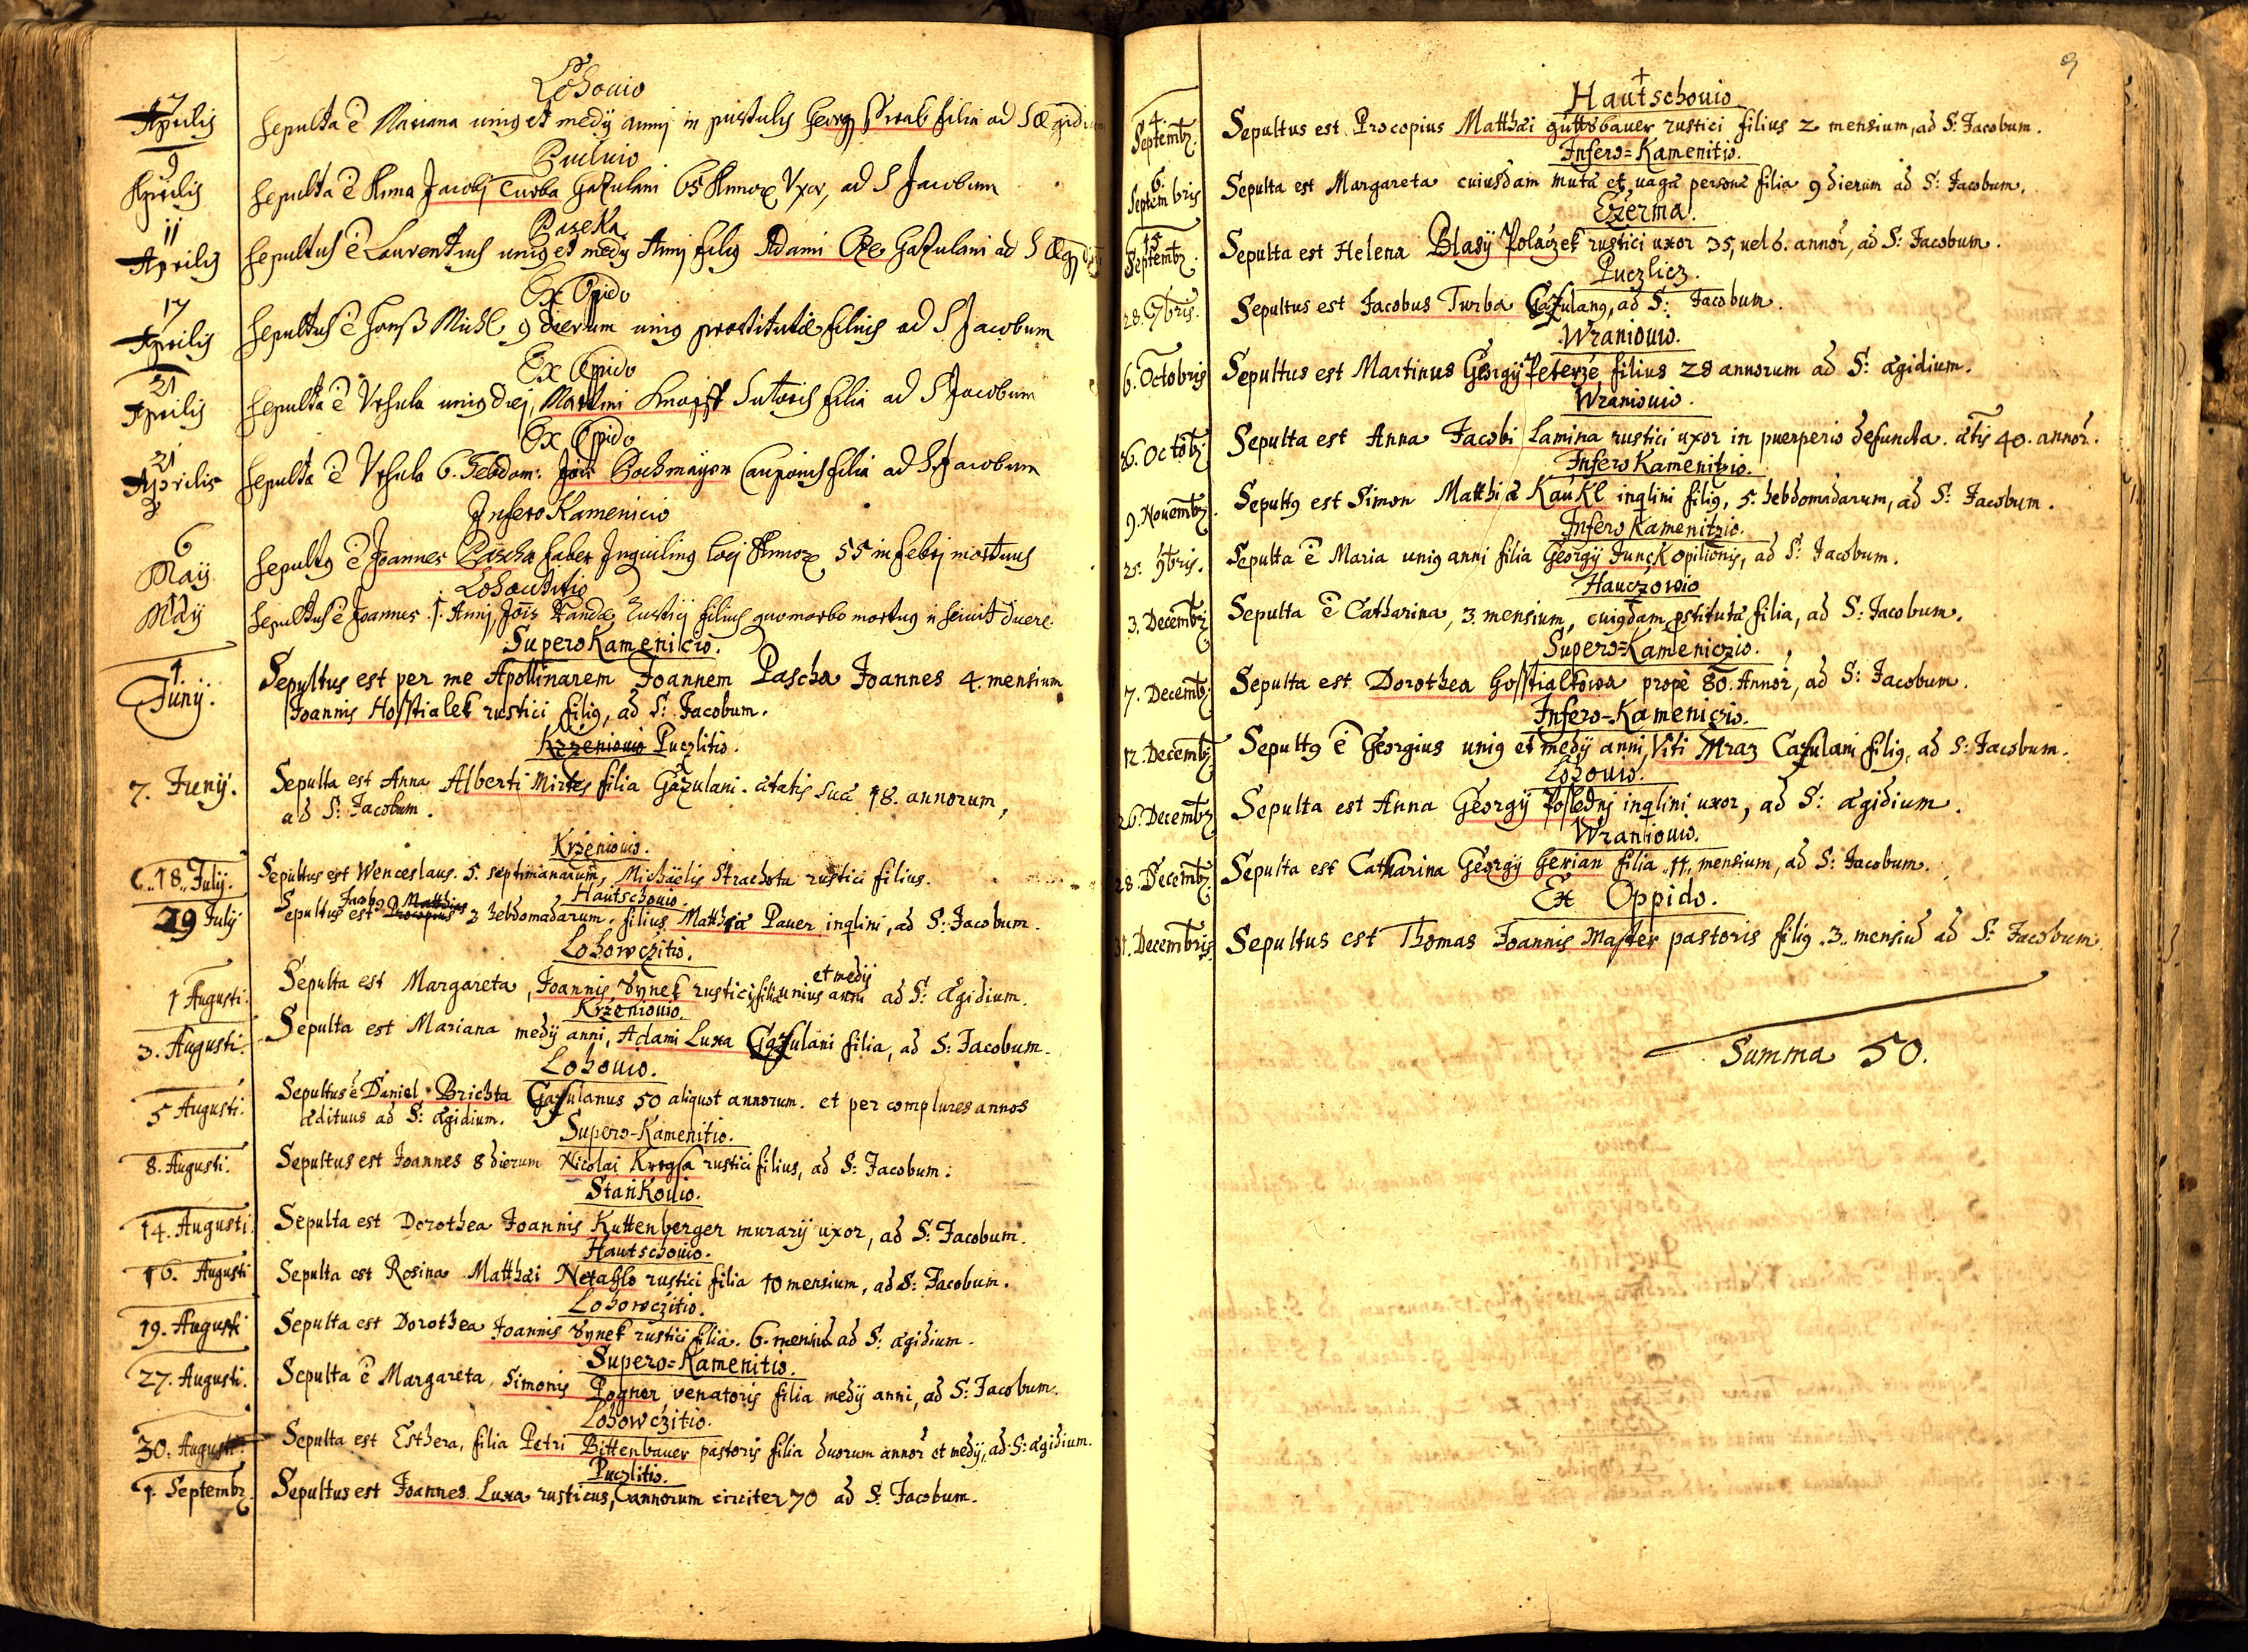 Lohouio
7 Aprilis Sepulta ē Mariana uniꝯ et medij anni in pustulis Georgij filia ad S Ægidium
9 Aprilis Sepulta ē Anna Jacobj Turba Gazulani 65 Annoꝝ Vxor, ad S Jacobum
11 Aprilis Sepultus ē Laurentius uniꝯ et medij Annj filiꝯ Adami Gazulani ad S
Ex Opido
17 Aprilis Sepultus ē Hanß Michl 9 dierum uniꝯ prostitutæ filius ad S Jacobum
Ex Oppido
21 Aprilis Sepulta ē Vrsula uniꝯ diej, Martini Sutoris filia ad S Jacobum
Ex Oppido
21 Aprilis Sepulta ē Vrsula 6. Hebdom: Jois Bochmayer Cauponis filia ad S Jacobum
Infero Kamenicio
6 Maij Sepultꝯ ē Joannes Pascha faber Inquilinꝯ Annoꝝ 55 in febrj mortuus
Lohoutitio
Maij Sepultus ē Joannes 1. Annj, Jois rusticj filius quo morbo mortuꝯ
Supero Kamenicio.
1. Junij. Sepultus est per me Apollinarem Joannem Pascha Joannes 4. mensium
Joannis Hosstialek rustici filiꝯ, ad S: Jacobum.
Krzeniouio Puczlitio.
7. Junij. Sepulta est Anna Alberti Mirtes filia Gazulani. ætatis suæ 18. annorum,
ad S: Jacobum.
Krzeniouio.
18. Julij. Sepultus est Wenceslaus. 5. septimanarum, Michaëlis Strachota rustici filius.
Hautschouio.
Jacobꝯ Matthias
29 Julij Sepultus est Procopius 3 hebdomadarum. filius Matthiæ Pauer inqlini, ad S: Jacobum.
Lohowczitio.
et medij
1 Augusti. Sepulta est Margareta, Joannis Synek rustici filia unius anni ad S: Ægidium.
Krzeniouio.
3. Augusti. Sepulta est Mariana medij anni, Adami Luxa Gazulani filia, ad S: Jacobum.
Lohouio.
5 Augusti. Sepultus ē Daniel Brichta Gazulanus 50 aliquot annorum. et per complures annos
ædituus ad S: Ægidium.
Supero-Kamenitio.
8. Augusti. Sepultus est Joannes 8 dierum Nicolai rustici filius, ad S: Jacobum.
Stankouio.
14. Augusti Sepulta est Dorothea Joannis Kuttenberger murarij uxor, ad S: Jacobum.
Hautschouio.
16. Augusti Sepulta est Rosina Matthæi Netahlo rustici filia 10 mensium, ad S: Jacobum.
Lohowczitio.
19. Augusti Sepulta est Dorothea Joannis Synek rustici filia. 6. mensiū ad S: Ægidium.
Supero=Kamenitio.
27. Augusti. Sepulta ē Margareta, Simonis Pogner venatoris filia medij anni, ad S: Jacobum.
Lohowczitio.
30. Augusti. Sepulta est Esthera, filia Petri Bittenbauer pastoris filia duorum annor et medij, ad S: Ægidium.
Puczlitio.
1. Septembr. Sepultus est Joannes Luxa rusticus, annorum circiter 70 ad S. Jacobum.
9
Hautschouio
4. Septembr. Sepultus est Procopius Matthæi guttsbauer rustici filius 2 mensium, ad S: Jacobum.
Infero=Kamenitio.
6. Septembris Sepulta est Margareta cuiusdam mutæ et vagæ personæ filia 9 dierum ad S: Jacobum.
Czerma.
Septembr. Sepulta est Helena Blasij Polaczek rustici uxor 35, uel 6. annor, ad S: Jacobum.
Puczlicz.
28. 7bris. Sepultus est Jacobus Turba Gazulanꝯ, ad S: Jacobum.
Wraniouio.
6. Octobris Sepultus est Martinus Georgij Peterze filius 28 annorum ad S: Ægidium.
Wraniouio.
Octobr Sepulta est Anna Jacobi Lamina rustici uxor in puerperio defuncta. ætis 40. annor.
Infero Kamenitzio.
9. Novembr. Sepultꝯ est Simon Matthiæ Kaukl inqlini filiꝯ, 5. hebdomadarum, ad S: Jacobum.
Infero Kamenitzio.
25. 9bris. Sepulta ē Maria uniꝯ anni filia Georgij Junck opilionis, ad S: Jacobum.
Hauczowio
3. Decembr Sepulta ē Catharina, 3 mensium, cuiꝯdam pstitutæ filia, ad S: Jacobum.
Supero=Kameniczio.
7. Decembr. Sepulta est Dorothea Hosstialkowa prope 80. Annor, ad S: Jacobum.
Infero-Kameniczio.
12. Decembr Sepultꝯ ē Georgius uniꝯ et medij anni, Viti Mraz Cazulani filiꝯ, ad S: Jacobum.
Lohouio.
26. Decembr Sepulta est Anna Georgij Poslednj inqlini uxor, ad S: Ægidium.
Wraniouio.
28. Decembr. Sepulta est Catharina Georgij Gerian filia 11 mensium, ad S: Jacobum.
Ex Oppido.
31. Decembris Sepultus est Thomas Joannis Master pastoris filiꝯ 3. mensiū ad S: Jacobum
Summa 50.